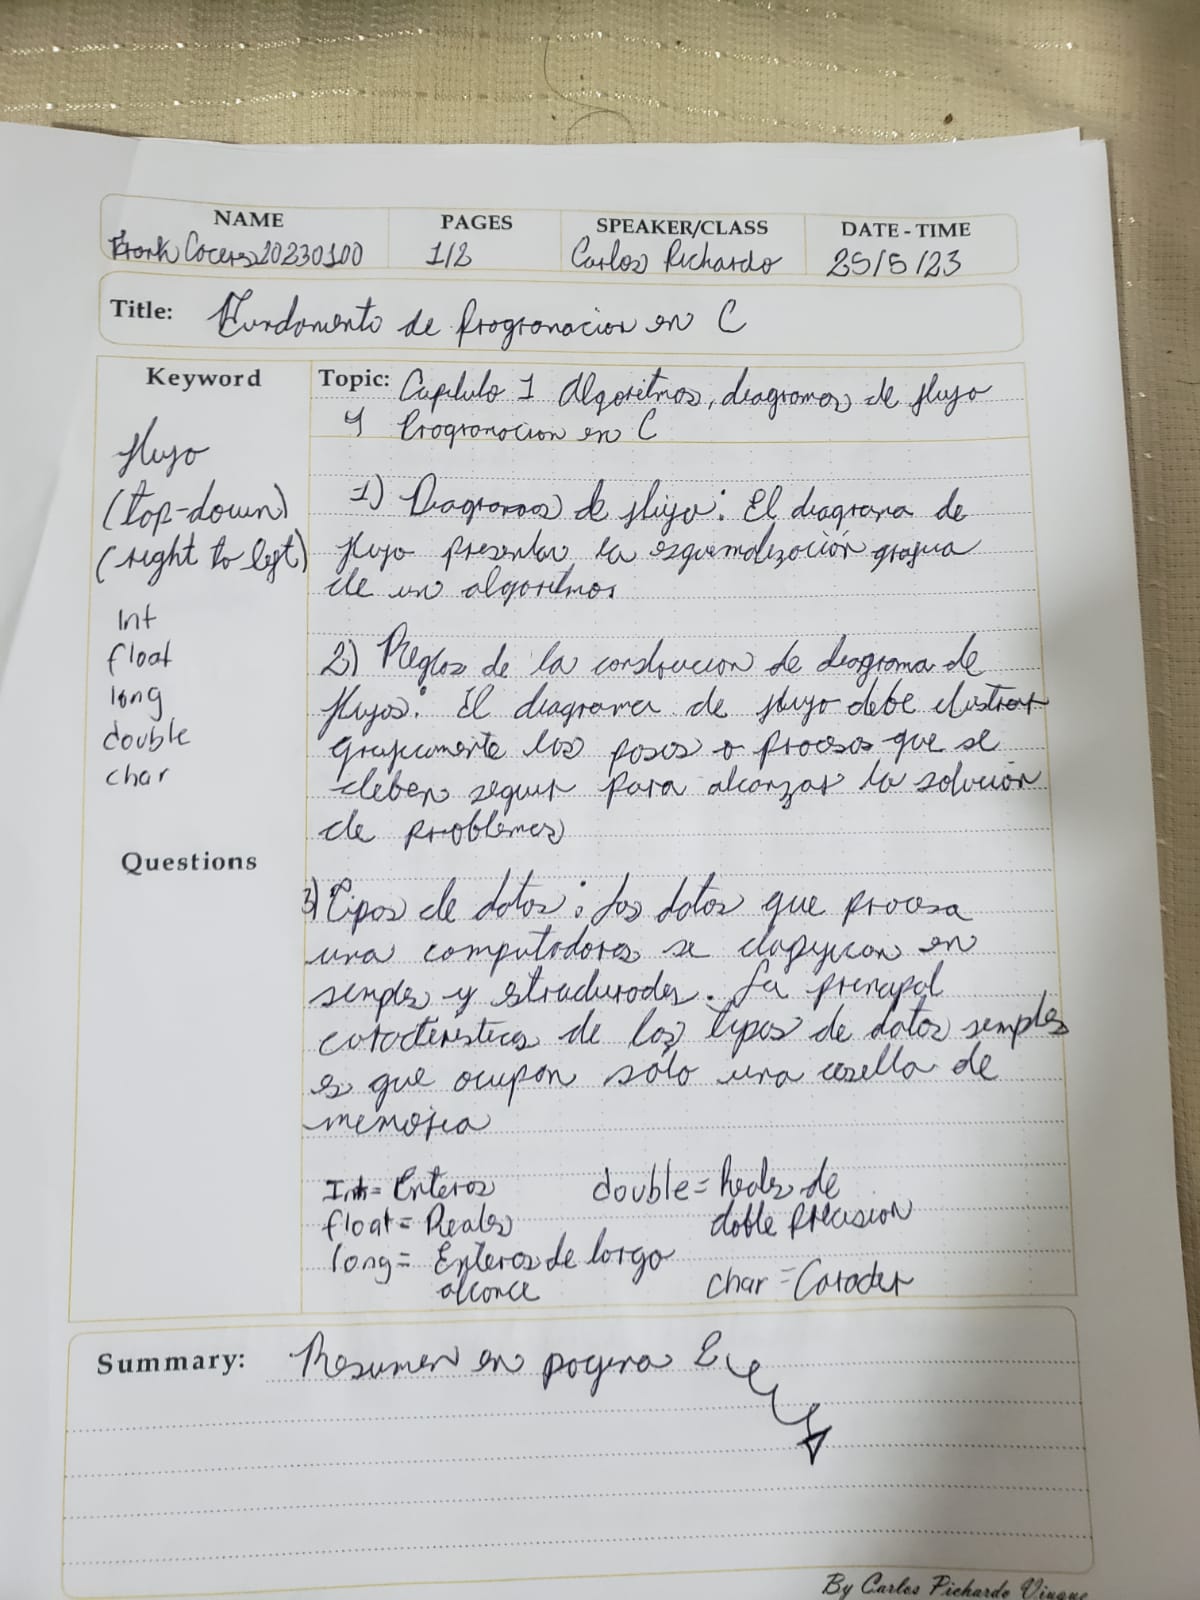 NAME
PAGES
SPEAKER/CLASS
DATE - TIME
Frank 20230100
1/2
Carlos Pichardo
25/5/23
Title: Fundamento de Programacion en C
Keyword
flujo
(top-down)
(right to left)
Int
float
long
double
char
Questions
Topic: Capitulo 1 Algoritmos, diagramas de flujo
y Programacion en C
1) Diagramas de flujo: El diagrama de
flujo presentar la esquematización grafica
de un algoritmos
2) Reglas de la construccion de diagrama de
flujos: El diagrama de flujo debe ilustrar
graficamente los pasos o procesos que se
deben seguir para alcanzar la solución
de problemas
3) Tipos de datos: Los datos que procesa
una computadoras se clasifican en
simples y estructurados. La principal
caracteristicas de los tipos de datos simples
es que ocupan sólo una casilla de
memoria
Int = Enteros
float = Reales
long = Enteros de largo
alcance
double = Reales de
doble precision
char = Caracter
Summary: Resumen en pagina 2
By Carlos Pichardo Viuque